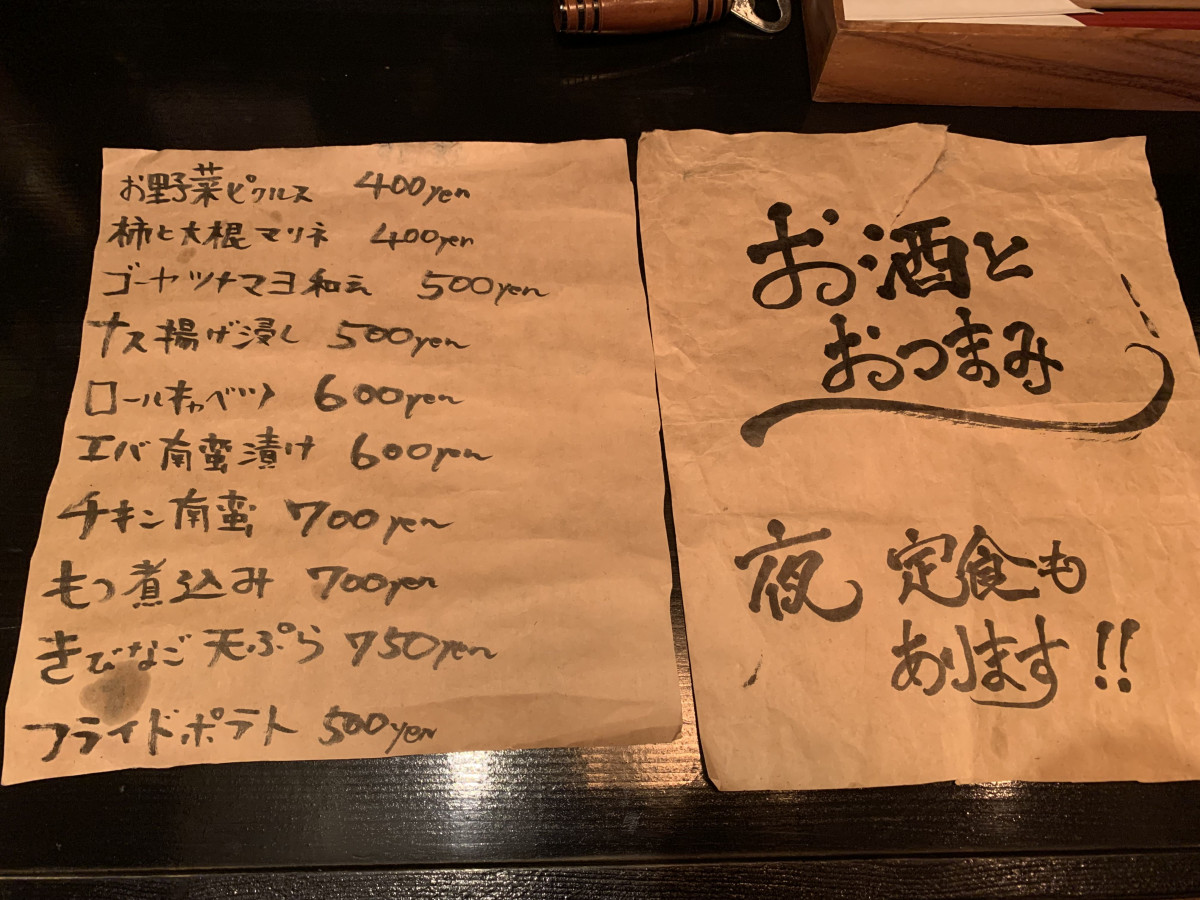 お野菜ピクルス 400yen
柿と大根マリネ 400yen
ゴーヤツナマヨ和え 500yen
ナス揚げ浸し 500yen
ロールキャベツ 600yen
エバ南蛮漬け 600yen
チキン南蛮 700yen
もつ煮込み 700yen
きびなご天ぷら 750yen
フライドポテト 500yen
お酒と
おつまみ
夜 定食も
あります!!